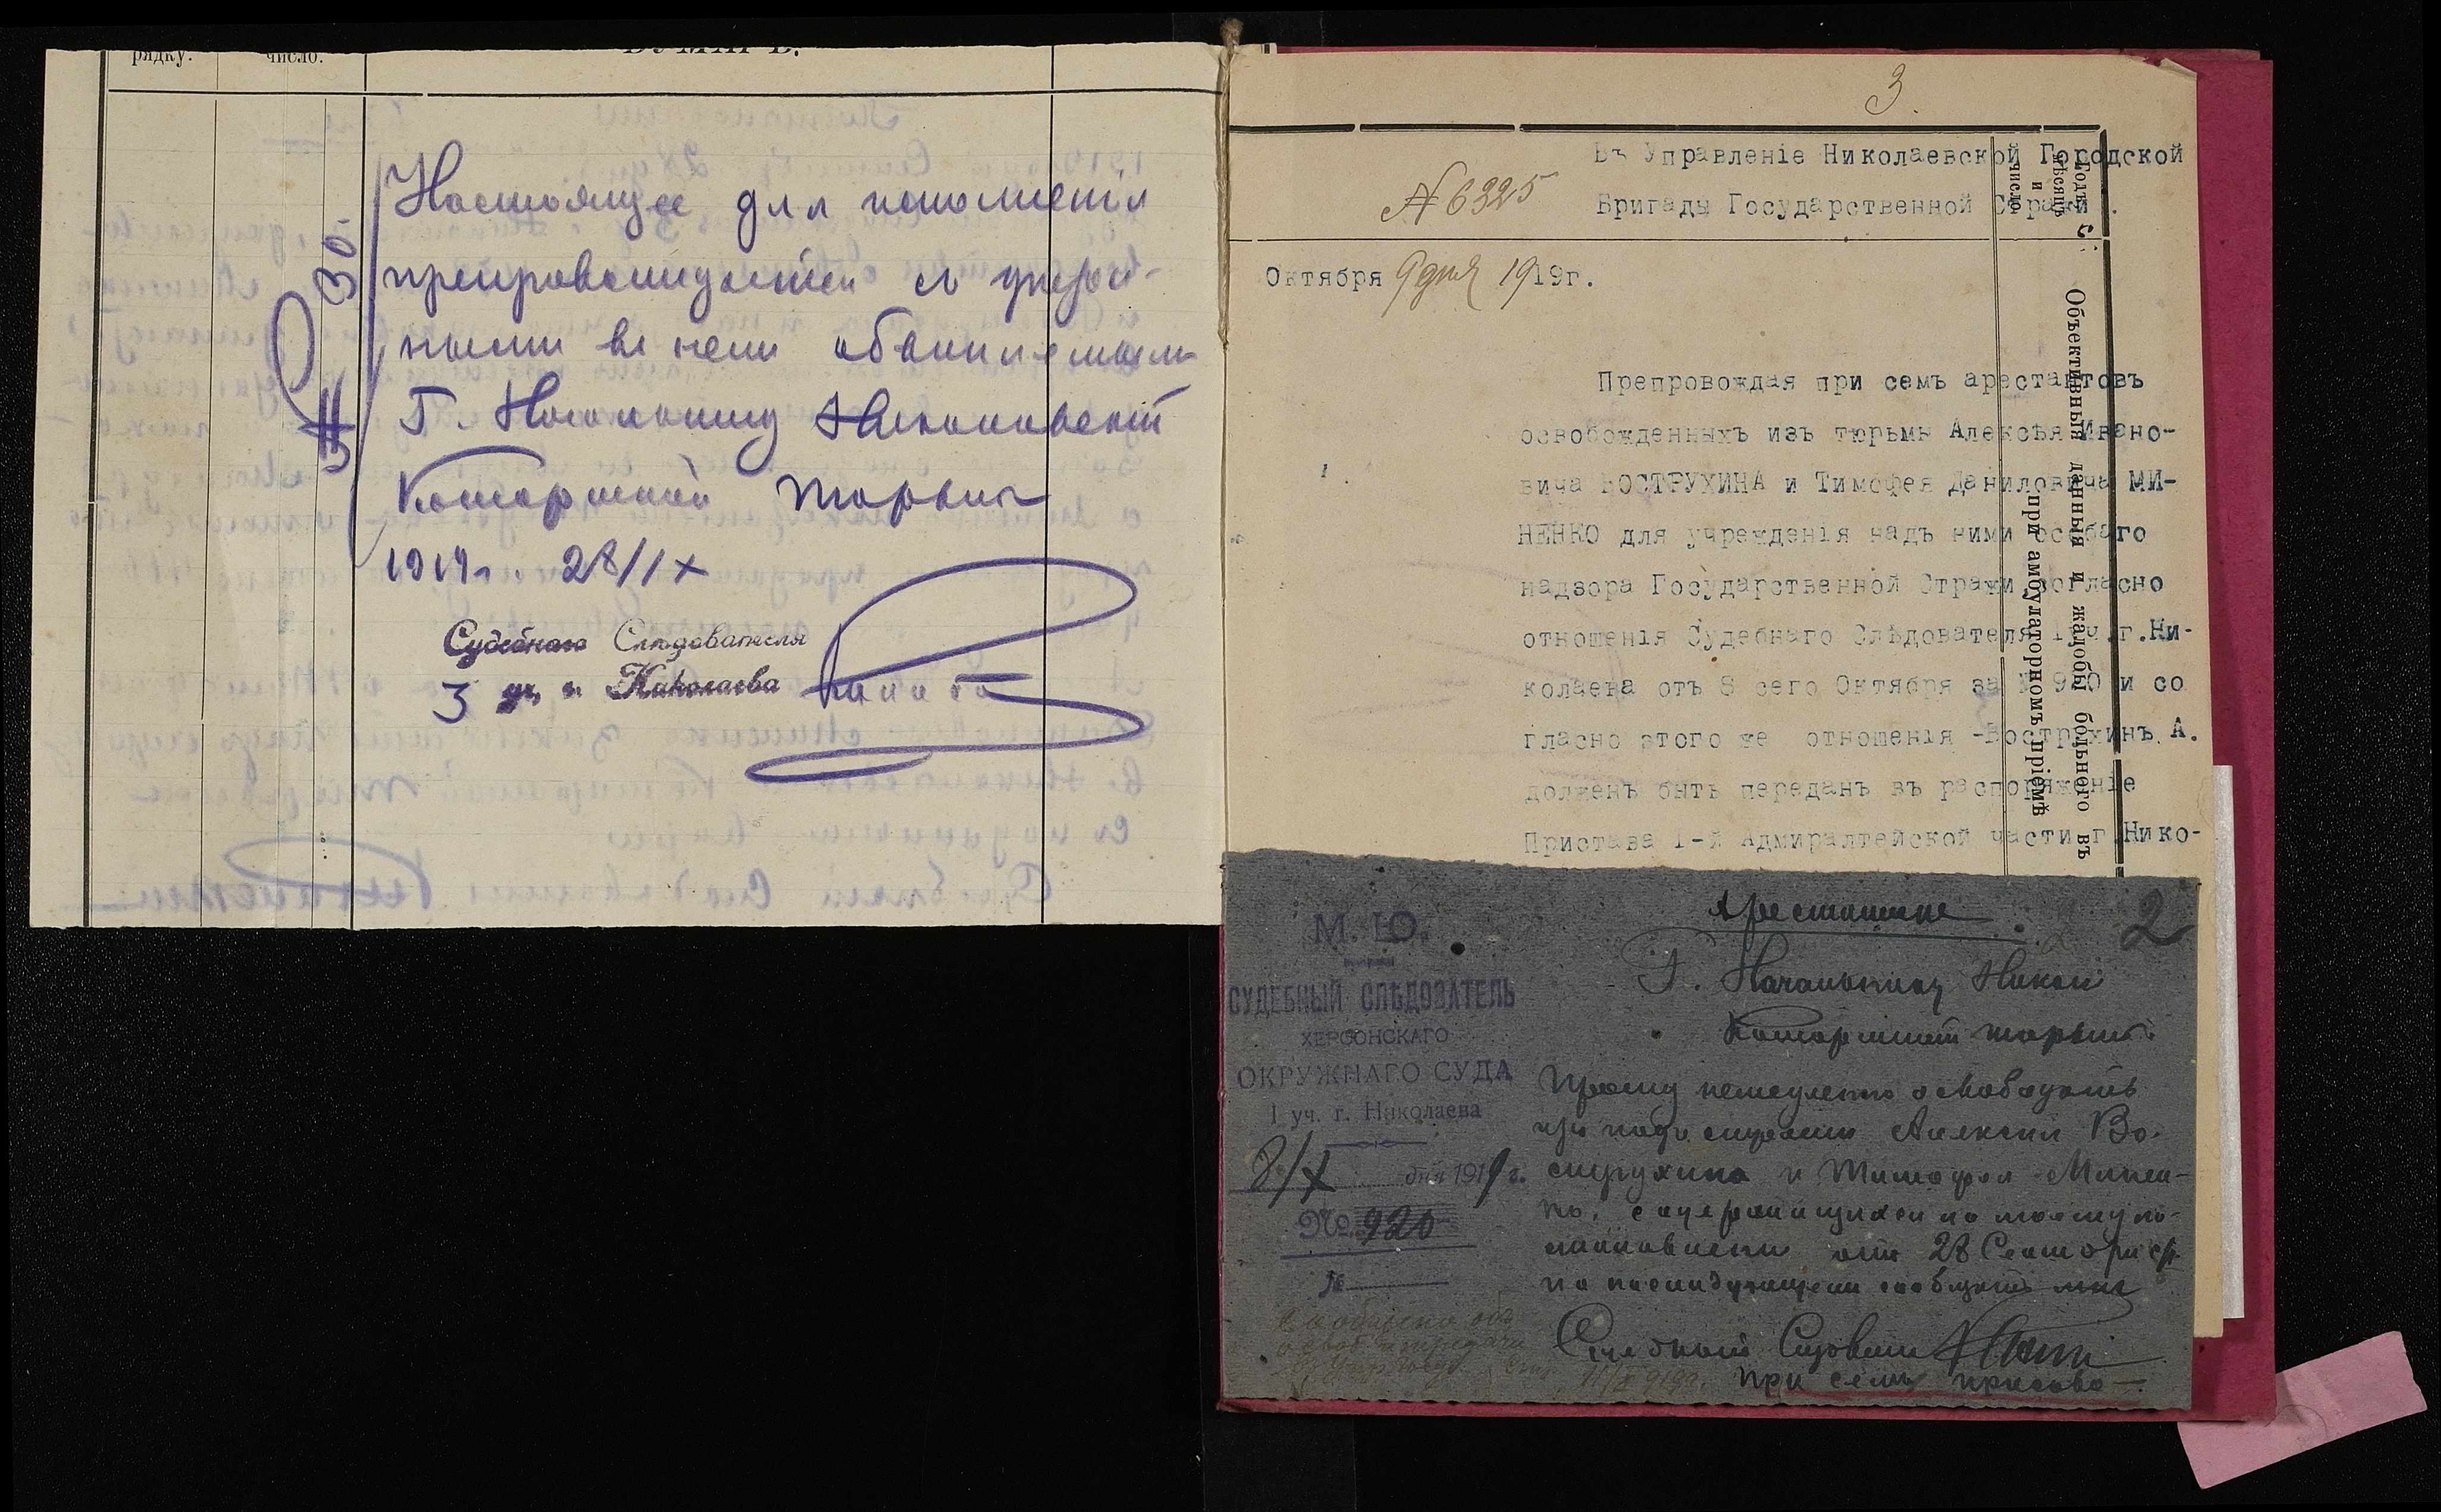 рядку.
число.
Настоящее для исполненія
препровождается съ указан-
ными въ немъ обвиняемыми
Г. Начальнику Николаевской
Каторжной тюрьмы
1919 г. 28/IX
Судебнаго Слѣдователя
3 уч. г. Николаева
№ 30.
3.
Въ Управленіе Николаевской Городской
Бригады Государственной Стражи.
№ 6325
Октября 9 дня 1919г.
Препровождая при семъ арестантовъ
освобожденныхъ изъ тюрьмы Алексѣя Ивано-
вича ВОСТРУХИНА и Тимофея Даниловича МИ-
НЕНКО для учрежденія надъ ними особаго
надзора Государственной Стражи согласно
отношенія Судебнаго Слѣдователя 1 уч. г. Ни-
колаева отъ 8 сего Октября за № 920 и со
гласно этого же отношенія -Вострухинъ А.
долженъ быть переданъ въ распоряженіе
Пристава I-й Адмиралтейской части г. Нико-
Годъ
мѣсяцъ
и
число
Объективныя данныя и жалобы больного въ
при амбулаторномъ пріемѣ
2
Арестантское
Г. Начальнику Никол
Каторжной тюрьмы.
М. Ю.
СУДЕБНЫЙ СЛѢДОВАТЕЛЬ
ХЕРСОНСКАГО
ОКРУЖНАГО СУДА
1 уч. г. Николаева
8/X дня 1919 г.
№ 920
Прошу немедленно освободить
изъ подъ стражи Алексѣя Во-
струхина и Тимофея Минен-
ко, содержащихся по моему по-
становленію отъ 28 Сентября с/г
по послѣдующемъ сообщить мнѣ
Судебный Слѣдователь
При семъ